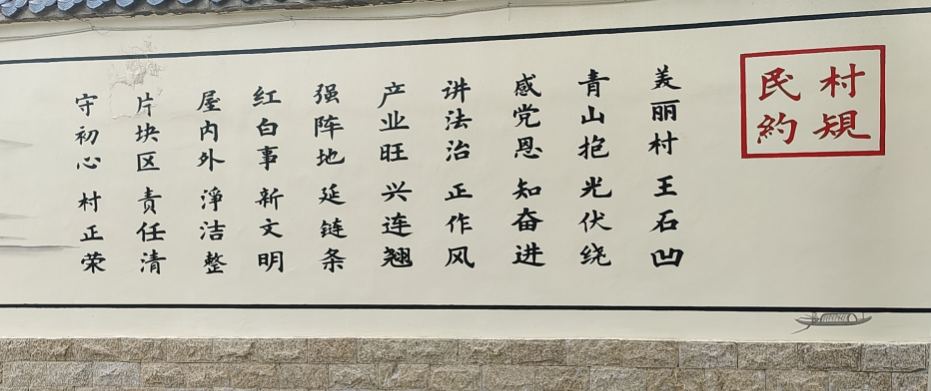 村规
民约
美丽村 王石凹
青山抱 光伏绕
感党恩 知奋进
讲法治 正作风
产业旺 兴连翘
强阵地 延链条
红白事 新文明
屋内外 淨洁整
片块区 责任清
守初心 村正荣